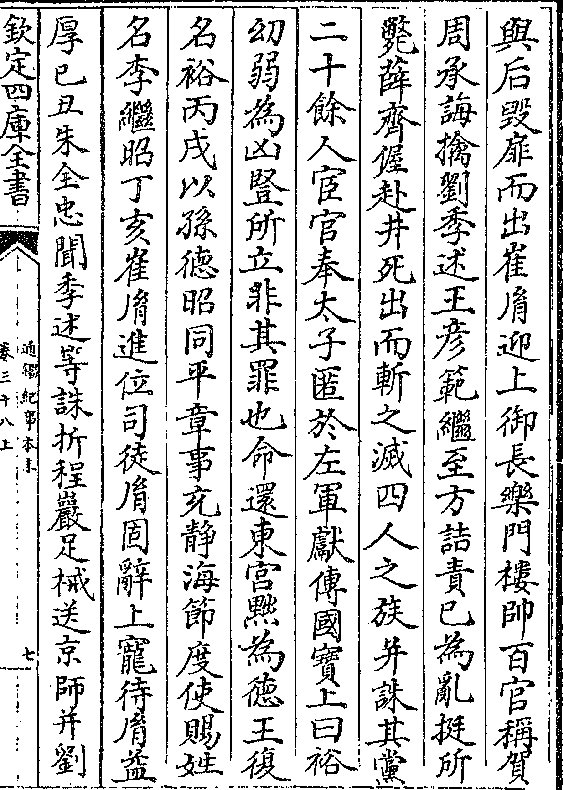 與后毀扉而出崔胤迎上御長樂門樓帥百官稱賀
周承誨擒劉季述王彥範繼至方詰責已為亂挺所
斃薛齊偓赴井死出而斬之滅四人之族并誅其黨
二十餘人宦官奉太子匿於左軍獻傳國寶上曰裕
幼弱為凶豎所立非其罪也命還東宮黜為德王復
名裕丙戌以孫德昭同平章事充靜海節度使賜姓
名李繼昭丁亥崔胤進位司徒胤固辭上寵待胤益
厚已丑朱全忠聞季述等誅折程巖足械送京師并劉
欽定四庫全書
通鑑紀事本末
卷三十八上
七